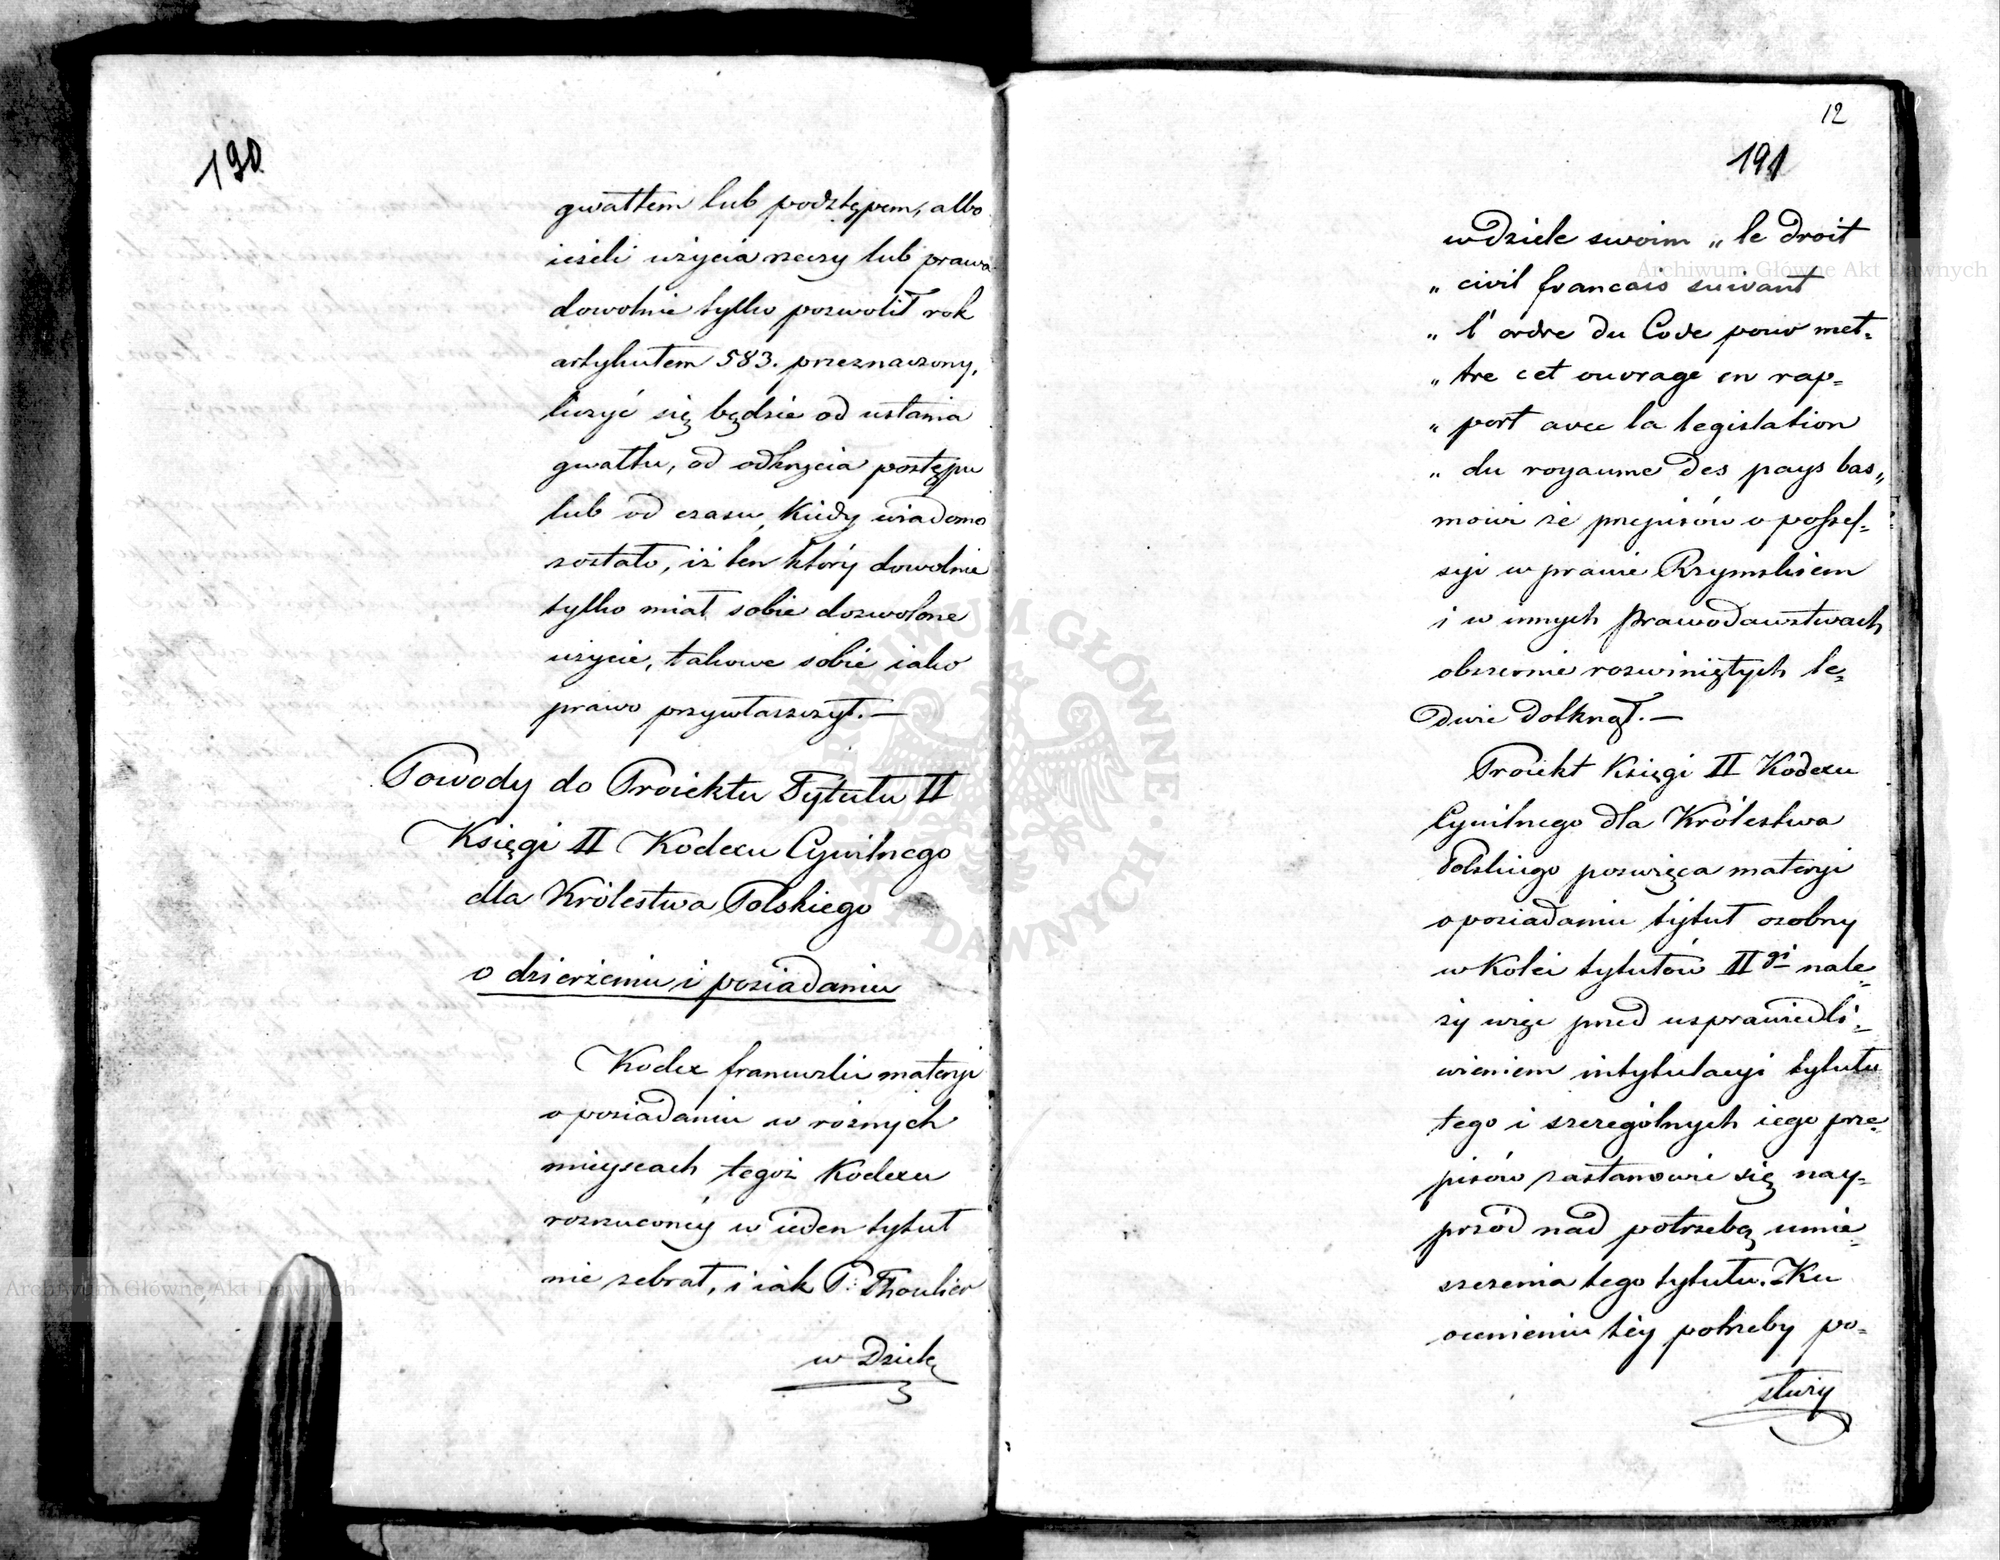 190
gwałtem lub podstępem, albo
ieżeli użycia rzeczy lub prawa
dowolnie tylko pozwolił rok
artykułem 583. przeznaczony,
liczyć się będzie od ustania
gwałtu, od odkrycia postępu
lub od czasu, kiedy wiadomo
zostało, iż ten który dowolnie
tylko miał sobie dozwolone
użycie, takowe sobie iako
prawo przywłaszczył. —
Powody do Proiektu Tytułu II
Księgi II Kodexu Cywilnego
dla Królestwa Polskiego
o dzierżeniu i posiadaniu
Kodex francuzki materyi
o posiadaniu w różnych
mieyscach tegoż Kodexu
rozrzuconéy w ieden tytuł
nie zebrał, i iak P:
w Dziele
12
191
w dziele swoim „ le droit
„ civil francais suivant
„ l'ordre du Code pour met=
„ tre cet ouvrage en rap=
„ port avec la legislation
„ du royaume des pays bas„
mówi że przepisów o posses=
syi w prawie Rzymskiem
i w innych prawodawstwach
obszernie rozwiniętych le=
dwie dotknął. —
Proiekt Księgi II Kodexu
Cywilnego dla Królestwa
Polskiego poswięca materyi
o posiadaniu tytuł osobny
w kolei tytułów IIgi nale=
ży więc przed usprawiedli=
wieniem intytulacyi tytułu
tego i szczególnych iego prze=
pisów zastanowić się nay=
przód nad potrzebą umie=
szczenia tego tytułu. Ku
ocenieniu téy potrzeby po=
służy
Archiwum Główne Akt Dawnych
Archiwum Główne Akt Dawnych
ARCHIWUM GŁÓWNE AKT DAWNYCH